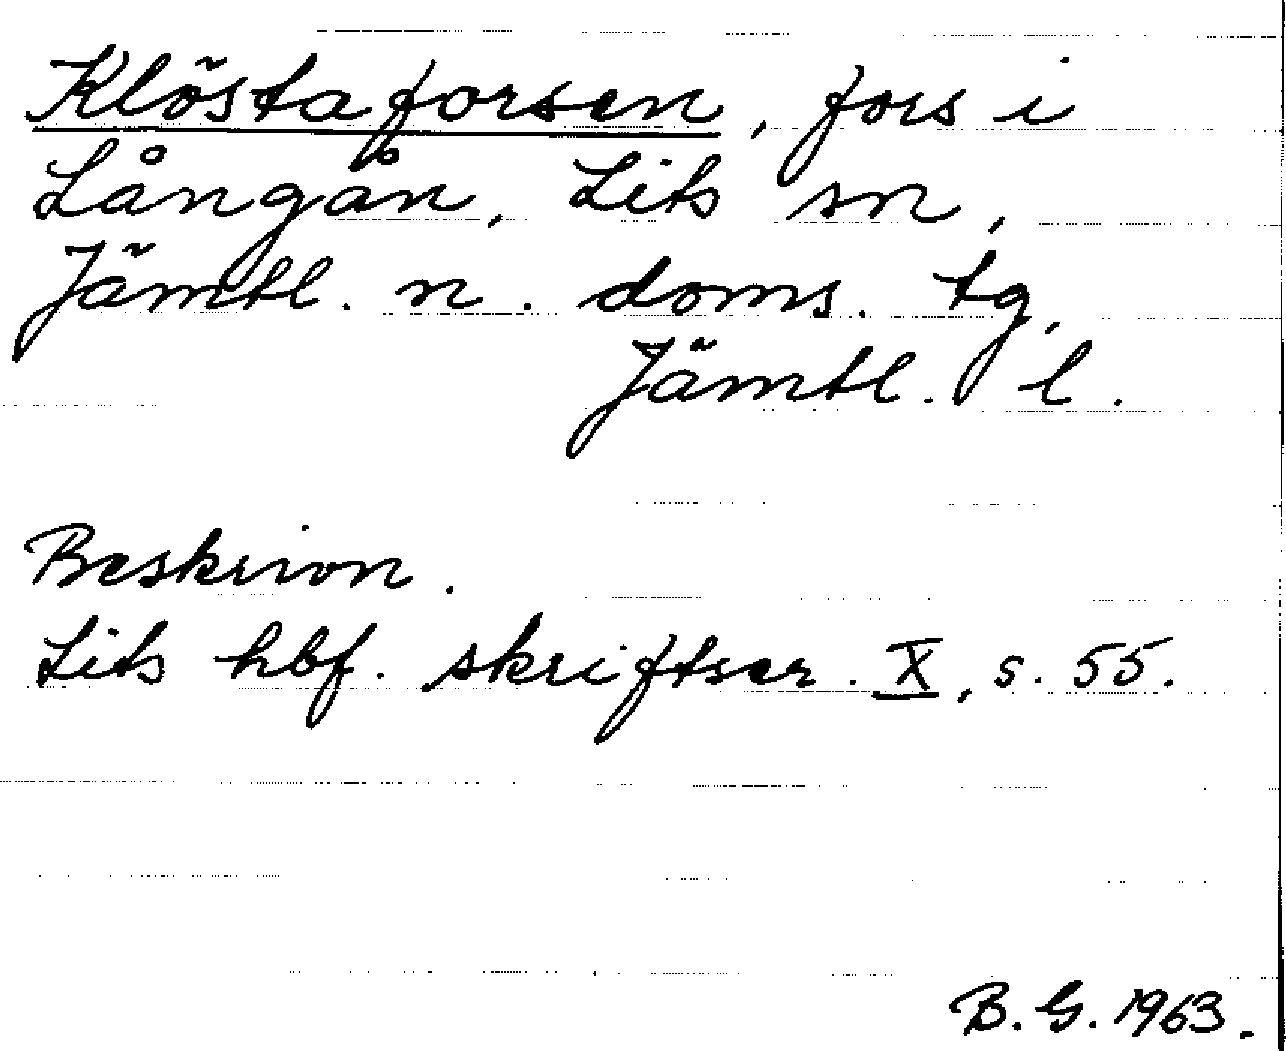 Klöstaforsen, fors i
Långån, Lits sn,
Jämtl. n. doms. tg,
Jämtl. l.
Beskrivn.
Lits hbf. skriftser. X, s. 55.
B. G. 1963.